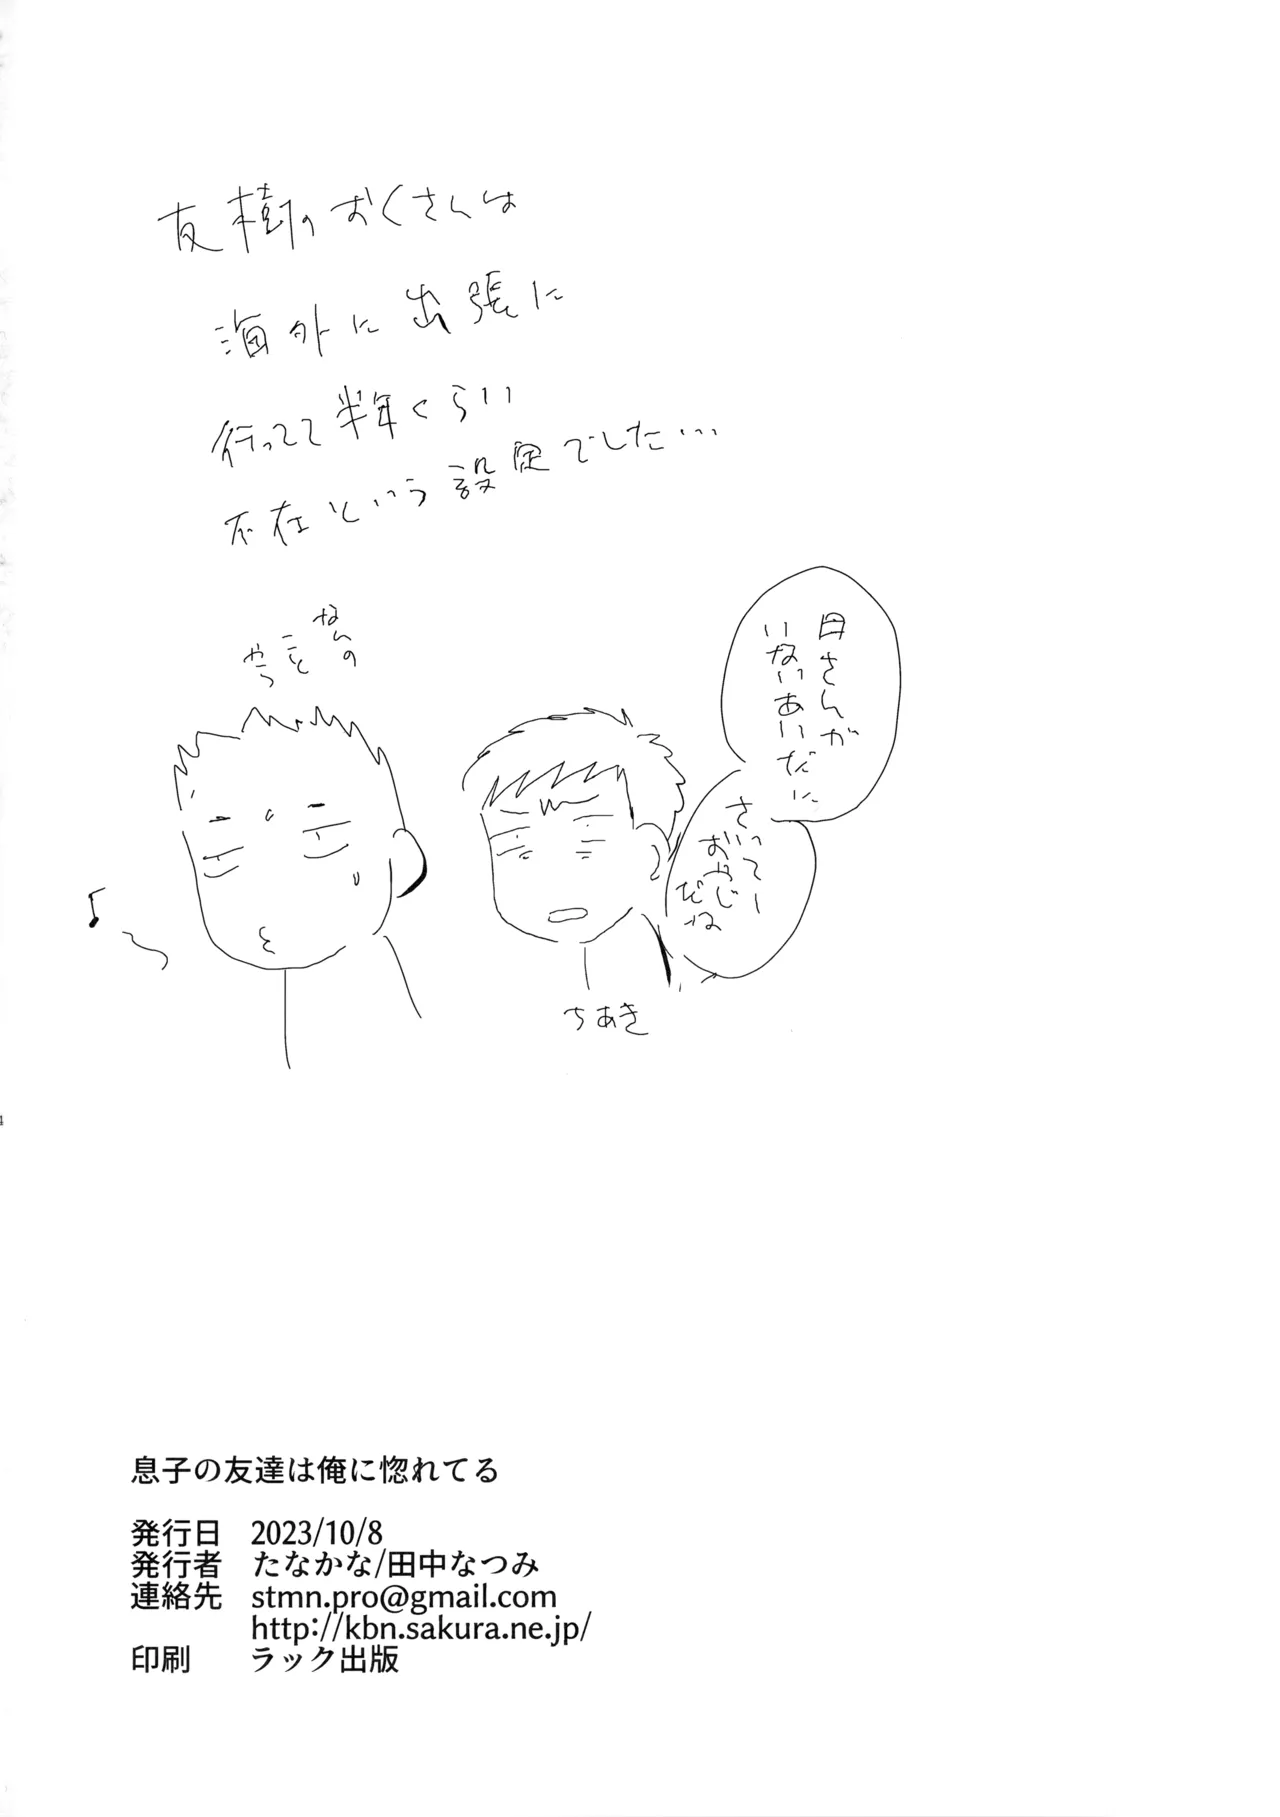 友樹のおくさんは
海外に出張に
行ってて半年くらい
不在という設定でした…
母さんが
いないあいだに
さいってー
おやじ
だね
なんの
ことやら
ちあき
息子の友達は俺に惚れてる
発行日 2023/10/8
発行者 たなかな/田中なつみ
連絡先 stmn.pro@gmail.com
http://kbn.sakura.ne.jp/
印刷 ラック出版